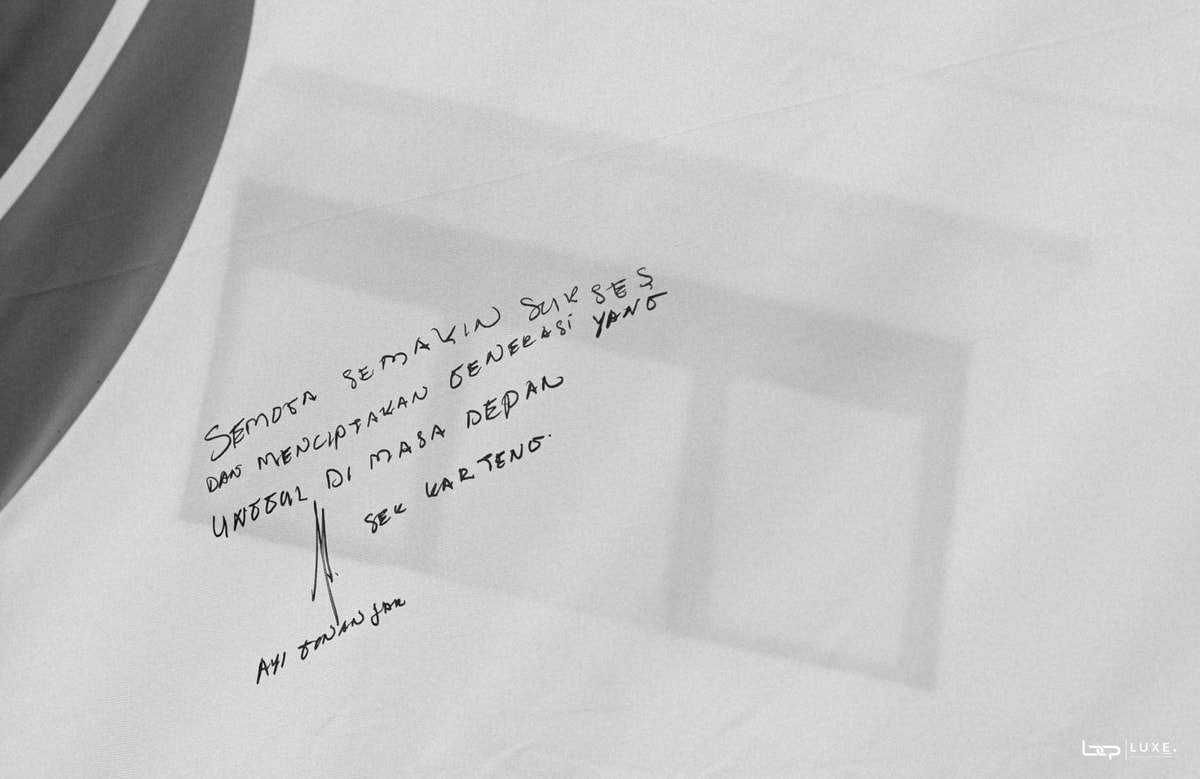 SEMOGA SEMAKIN SUKSES
DAN MENCIPTAKAN GENERASI YANG
UNGGUL DI MASA DEPAN
SEK KARTENG.
AYI GONANJAR
LUXE.